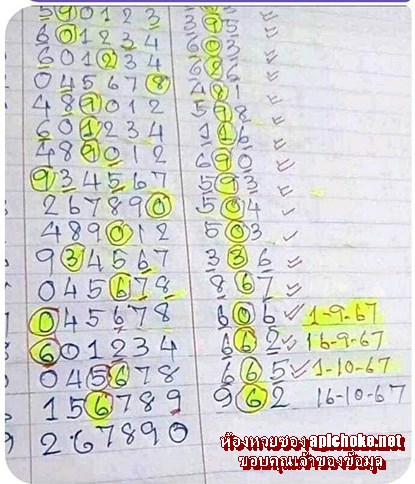 590123 395
601234 603
601234 686
045678 481
489012 598
601234 116
489012 690
934567 593
267890 504
489012 503
934567 336
045678 867
045678 606 1-9-67
601234 662 16-9-67
045678 665 1-10-67
156789 962 16-10-67
267890
ห้องหวยซอง apichoke.net
ขอบคุณเจ้าของข้อมูล